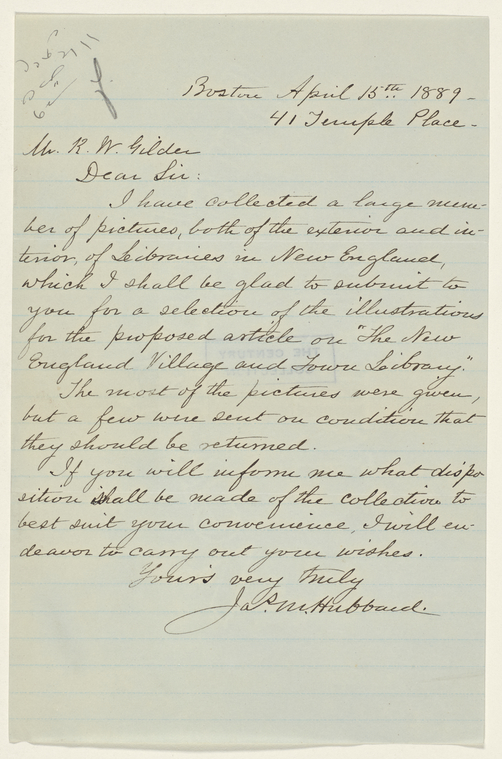 Boston April 15th 1889-
41 Temple Place-
Mr. R. W. Gilder
Dear Sir:
I have collected a large num-
ber of pictures, both of the exterior and in-
terior, of Libraries in New England,
which I shall be glad to submit to
you for a selection of the illustrations
for the proposed article on "The New
England Village and Town Library."
The most of the pictures were given,
but a few were sent on condition that
they should be returned.
If you will inform me what dispo
sition shall be made of the collection to
best suit your convenience, I will en-
deavor to carry out your wishes.
Your's very truly
Jas. M. Hubbard.